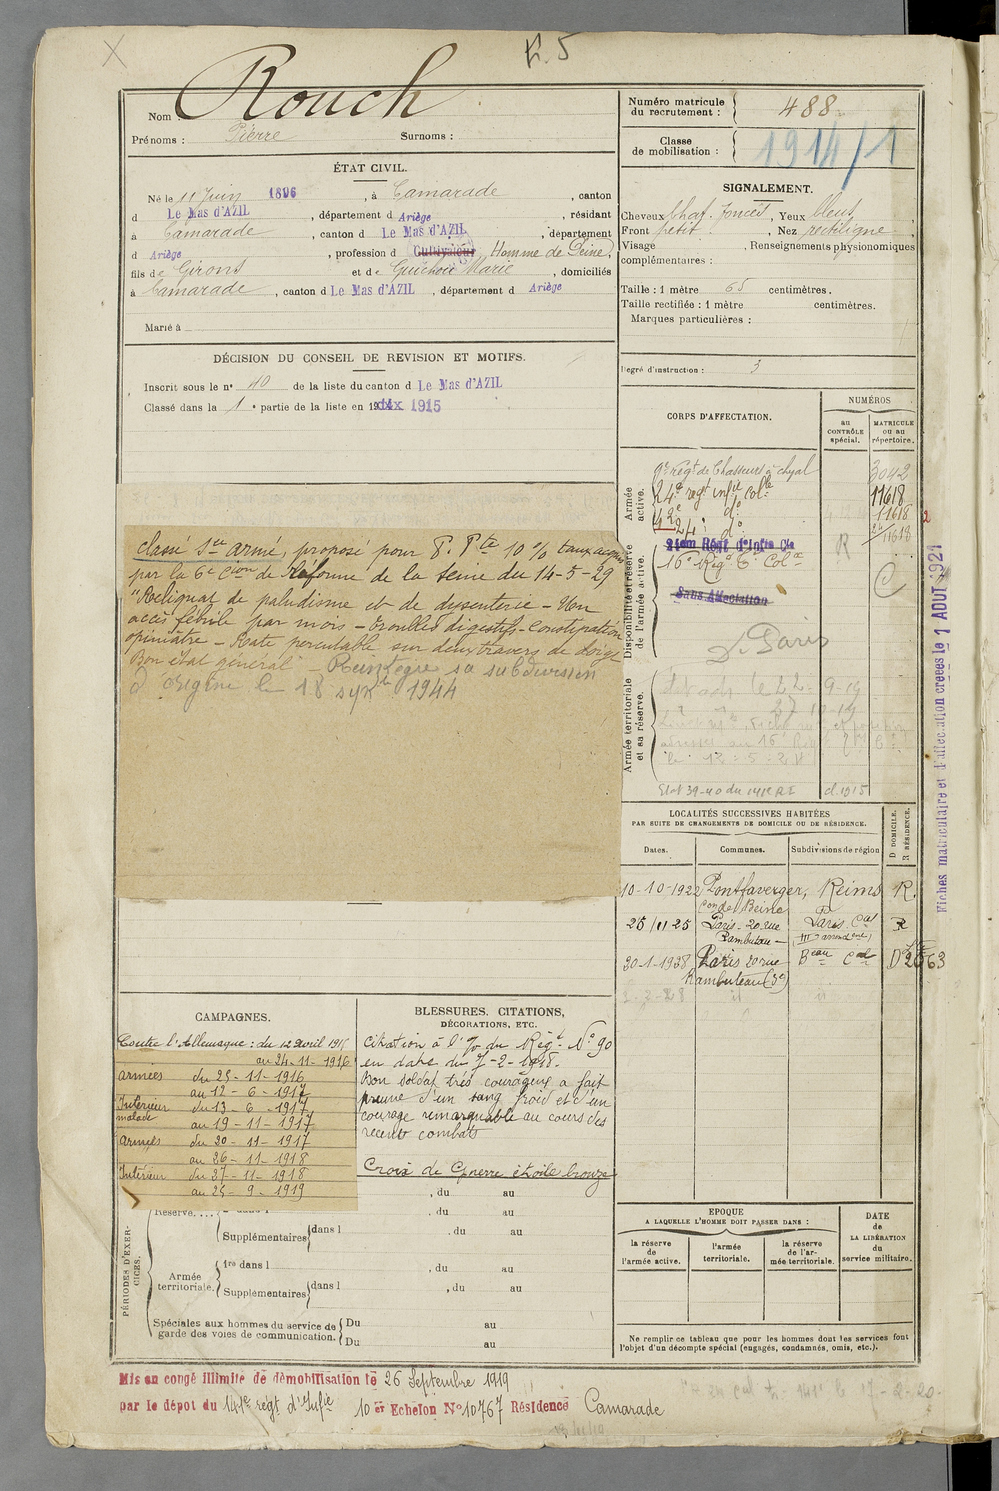 R. 5
Nom Rouch
Prénoms : Pierre Surnoms :
ÉTAT CIVIL.
Né le 11 Juin 1896, à Camarade, canton
d Le Mas d'AZIL, département d Ariège, résidant
à Camarade, canton d Le Mas d'AZIL, département
d Ariège, profession d Cultivateur Homme de Peine,
fils de Girons et de Marie, domiciliés
à Camarade, canton d Le Mas d'AZIL, département d Ariège
Marié à
DÉCISION DU CONSEIL DE REVISION ET MOTIFS.
Inscrit sous le n° 40 de la liste du canton d Le Mas d'AZIL
Classé dans la 1e partie de la liste en 1915
classé Sce armé, proposé pour P. Pte 10 % taux acquis
par la 6e Cion de Réforme de la Seine du 14-5-29
"Reliquat de paludisme et de dysenterie - Un
accès fébrile par mois - troubles digestifs - Constipation
opiniâtre - Rate percutable sur deux travers de doigt
Bon état général - Réintègre sa subdivision
d'origine le 18 sept 1944
CAMPAGNES.
Contre l'Allemagne : du 12 avril 1915
au 24-11-1916
armées du 25-11-1916
au 12-6-1917
Intérieur du 13-6-1917
malade au 19-11-1917
armées du 20-11-1917
au 26-11-1918
Intérieur du 27-11-1918
au 25-9-1919
BLESSURES, CITATIONS,
DÉCORATIONS, ETC.
Citation à l'O/ du Régt N° 90
en date du 7-2-1918.
Bon soldat très courageux a fait
preuve d'un sang froid et d'un
courage remarquable au cours des
recents combats
Croix de Guerre étoile bronze
, du au
PÉRIODES D'EXERCICES.
Réserve.... , du au
Supplémentaires dans l , du au
Armée territoriale. 1re dans l , du au
Supplémentaires dans l , du au
Spéciales aux hommes du service de garde des voies de communication. Du au
Du au
Mis en congé illimité de démobilisation le 26 Septembre 1919
par le dépot du 141e régt d'Infie 10 er Echelon N° 10767 Résidence Camarade
Numéro matricule du recrutement : 488
Classe de mobilisation : 1914/1
SIGNALEMENT.
Cheveux chat. foncés, Yeux bleus
Front petit, Nez rectiligne
Visage , Renseignements physionomiques
complémentaires :
Taille : 1 mètre 65 centimètres.
Taille rectifiée : 1 mètre centimètres.
Marques particulières :
Degré d'instruction : 3
CORPS D'AFFECTATION.
NUMÉROS
au CONTRÔLE spécial.
MATRICULE ou au répertoire.
Armée active.
9e régt de Chasseurs à cheval 3042
24e regt infie colle 11618
42e do 11618
24e do 11618
Disponibilité et réserve de l'armée active.
24em Régt d'Infie Cle
16e Rég
Sans Affectation
D. Paris
C
Armée territoriale et sa réserve.
LOCALITÉS SUCCESSIVES HABITÉES
PAR SUITE DE CHANGEMENTS DE DOMICILE OU DE RÉSIDENCE.
Dates. Communes. Subdivisions de région D DOMICILE. R RÉSIDENCE.
10-10-1922 Pontfaverger, Reims R.
con de Beine
25/11 25 Paris - 20 rue Paris Cal R
Rambuteau - (III arrondent)
30-1-1938 Paris 20 rue Beau Cal D
Rambuteau (3e)
EPOQUE
A LAQUELLE L'HOMME DOIT PASSER DANS :
la réserve de l'armée active.
l'armée territoriale.
la réserve de l'armée territoriale.
DATE de LA LIBÉRATION du service militaire.
Ne remplir ce tableau que pour les hommes dont les services font
l'objet d'un décompte spécial (engagés, condamnés, omis, etc.).
Fiches matriculaire et d'affectation créées le 1 AOUT 1921